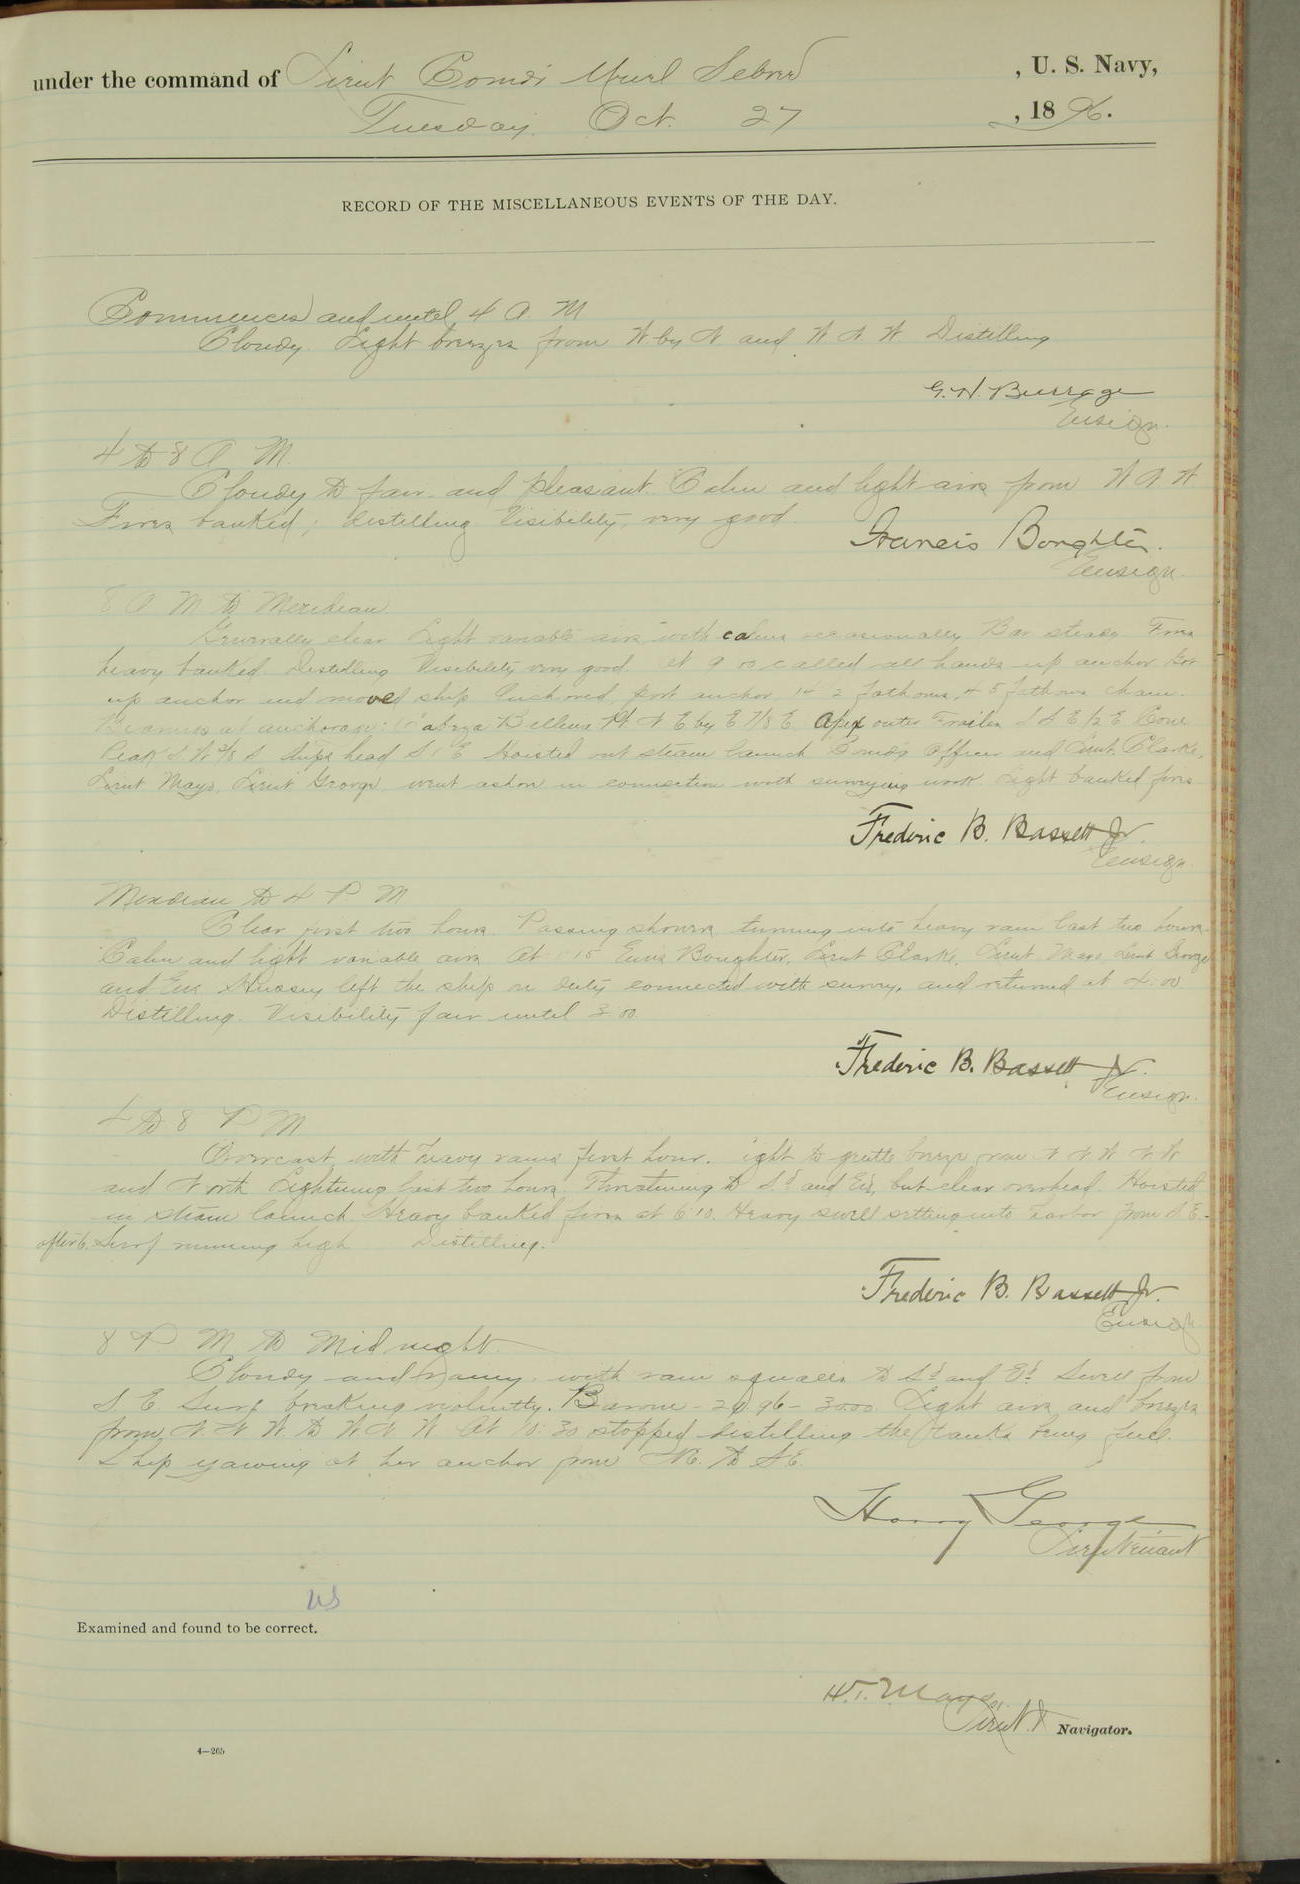 under the command of Lieut Comdr Uriel Sebree, U. S. Navy,
Tuesday Oct. 27, 1896.
RECORD OF THE MISCELLANEOUS EVENTS OF THE DAY.
Commences and until 4 A. M
Cloudy. Light breezes from and Distilling
G. W. Burrage
Ensign.
4 to 8 A. M.
Cloudy to fair and pleasant. Calm and light airs from
Fires banked; distilling Visibility, very good.
Francis Boughter.
Ensign.
8 A M to Meridian.
Generally clear Light variable airs with calms occasionally Bar steady Fires
heavy banked Distilling Visibility very good. At 9 00 called all hands up anchor Got
up anchor and moved ship Anchored, port anchor, 14 1/2 fathoms, 45 fathoms chain.
Bearings at anchorage: E by E 7/8 E Apex outer S S E 1/2 E Cone
Peak Ships head Hoisted out steam launch Comd'g Officer and Lieut. Clarke,
Lieut Mayo, Lieut George went ashore in connection with surveying work Light banked fires
Frederic B. Bassett Jr.
Ensign.
Meridian to 4 P M
Clear first two hours. Passing showers turning into heavy rain last two hours
Calm and light variable airs At 15 Ensign Boughter, Lieut Clarke, Lieut Mayo Lieut George
and Ens Hussey left the ship on duty connected with survey, and returned at 4.00
Distilling. Visibility fair until 3.00
Frederic B. Bassett Jr.
Ensign.
4 to 8 P M
Overcast with heavy rains first hour. Light to gentle breeze from N N W
and North Lightning last two hours, Threatening to S'd and E'd, but clear overhead. Hoisted
in steam launch. Heavy banked fires at 6.10. Heavy swell setting into harbor from S. E.
after 6. Surf running high Distilling.
Frederic B. Bassett Jr.
Ensign
8 P M to Midnight.
Cloudy and rainy, with rain squalls to S'd and E'd Swell from
S. E. Surf breaking violently. Barom - 29.96 - 30.00. Light airs and breezes
from to At 10.30 stopped distilling the tanks being full.
Ship yawing at her anchor from NE. to SE.
Harry George
Lieutenant
US
Examined and found to be correct.
H. T. Mayo
Lieut. Navigator.
4—265